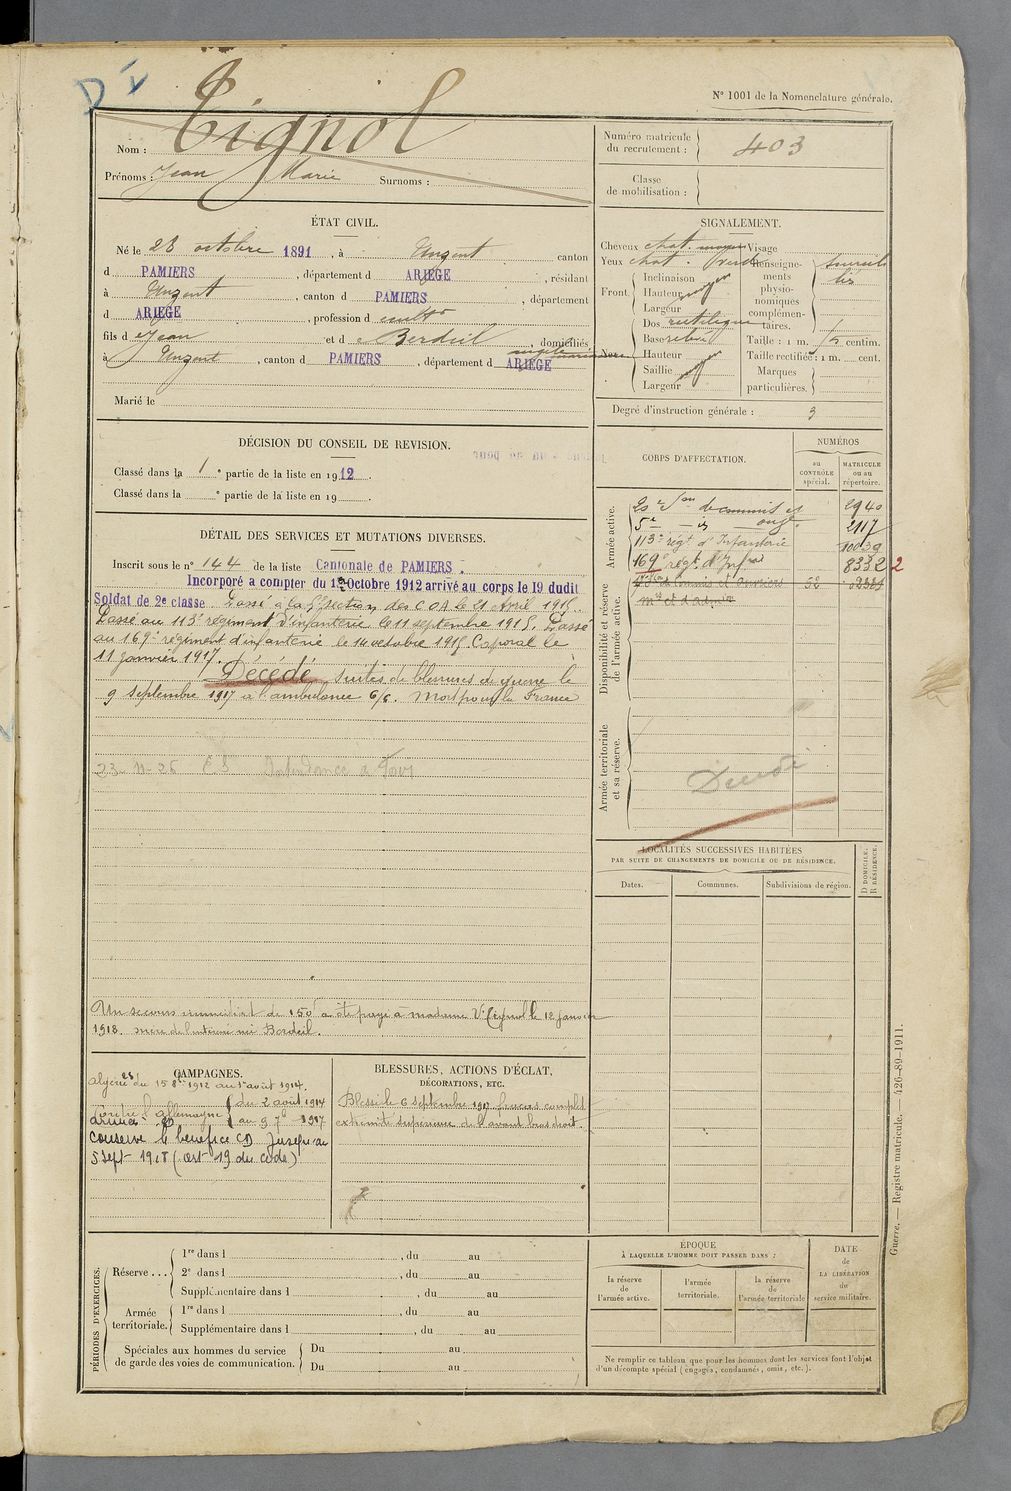 N° 1001 de la Nomenclature générale.
Nom : Tignol
Prénoms : Jean Marie Surnoms :
Numéro matricule du recrutement : 403
Classe de mobilisation :
ÉTAT CIVIL.
Né le 28 octobre 1891, à Unzent canton
d PAMIERS, département d ARIEGE, résidant
à Unzent, canton d PAMIERS, département
d ARIEGE, profession d cultr
fils d e Jean et d e Berdeil, domiciliés
à Unzent, canton d PAMIERS, département d ARIEGE
Marié le
SIGNALEMENT.
Cheveux chat. moyen Visage
Yeux chat. verd
Front.
Inclinaison
Hauteur moyen
Largeur
Nez
Dos rectiligne
Base relevé
Hauteur
Saillie
Largeur
Renseignements physionomiques complémentaires.
Taille : 1 m. centim.
Taille rectifiée : 1 m. cent.
Marques particulières.
Degré d'instruction générale : 3
DÉCISION DU CONSEIL DE REVISION.
Classé dans la 1e partie de la liste en 1912.
Classé dans la e partie de la liste en 19 .
CORPS D'AFFECTATION.
NUMÉROS
au CONTRÔLE spécial.
MATRICULE ou au répertoire.
Armée active.
20e Son de commis et ouvr. 2940
5e — is 2117
113e régt d'Infanterie 10039
169e régt d'Infrie 8332 2
Disponibilité et réserve de l'armée active.
Armée territoriale et sa réserve.
Décédé
DÉTAIL DES SERVICES ET MUTATIONS DIVERSES.
Inscrit sous le n° 144 de la liste Cantonale de PAMIERS.
Incorporé a compter du 1 Octobre 1912 arrivé au corps le 19 dudit
Soldat de 2e classe. Passé à la 5e section des C.O.A. le 21 Avril 1915.
Passé au 113e régiment d'infanterie le 11 septembre 1915. Passé
au 169e régiment d'infanterie le 14 octobre 1915. Caporal le
11 janvier 1917.
Décédé suites de blessures de guerre le
9 septembre 1917 à l'ambulance 6/6. Mort pour la France
23-11-26 Intendance à
Un secours immédiat de 150f a été payé à madame Ve Tignol le 12 janvier
1918. mère de l'intéressé née Berdeil.
LOCALITÉS SUCCESSIVES HABITÉES
PAR SUITE DE CHANGEMENTS DE DOMICILE OU DE RÉSIDENCE.
Dates. Communes. Subdivisions de région.
D DOMICILE. R RÉSIDENCE.
CAMPAGNES.
Algérie du 15 8bre 1912 au 1er août 1914.
Contre l'Allemagne du 2 août 1914
armées au 9 7bre 1917
conserve le bénéfice CD jusqu'au
5 sept 1918 (art 19 du code)
BLESSURES, ACTIONS D'ÉCLAT,
DÉCORATIONS, ETC.
Blessé le 6 septembre 1917 fracas complet
extrémité supérieure de l'avant bras droit.
PÉRIODES D'EXERCICES.
Réserve ...
1re dans l , du au
2e dans l , du au
Supplémentaire dans l , du au
Armée territoriale.
1re dans l , du au
Supplémentaire dans l , du au
Spéciales aux hommes du service de garde des voies de communication.
Du au
Du au
ÉPOQUE
À LAQUELLE L'HOMME DOIT PASSER DANS :
la réserve de l'armée active.
l'armée territoriale.
la réserve de l'armée territoriale
DATE de LA LIBÉRATION du service militaire.
Ne remplir ce tableau que pour les hommes dont les services font l'objet
d'un décompte spécial (engagés, condamnés, omis, etc.).
Guerre. — Registre matricule. — 426-89-1911.